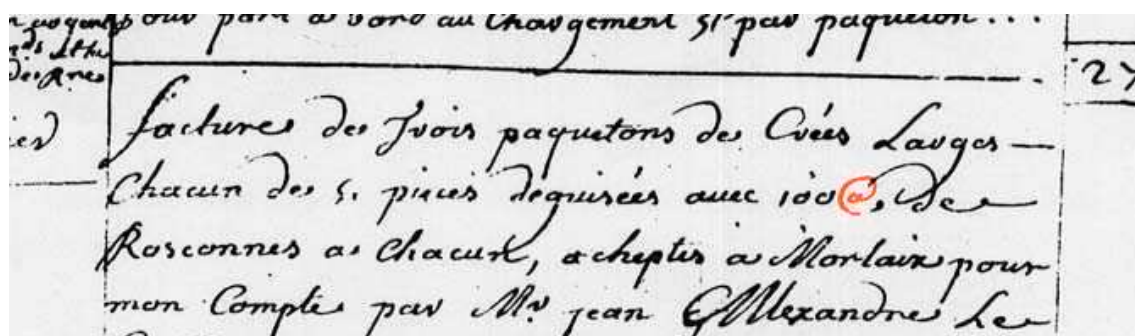 our part a bord au Chargement 5ˢ par paqueton...
facture de Trois paquetons de Crées Larges —
Chacun de 5. pieces deguisées avec 100 @, De
Rosconnes a Chacun, acheptés a Morlaix pour
mon Compte par Mr. jean & Alexandre Le
27